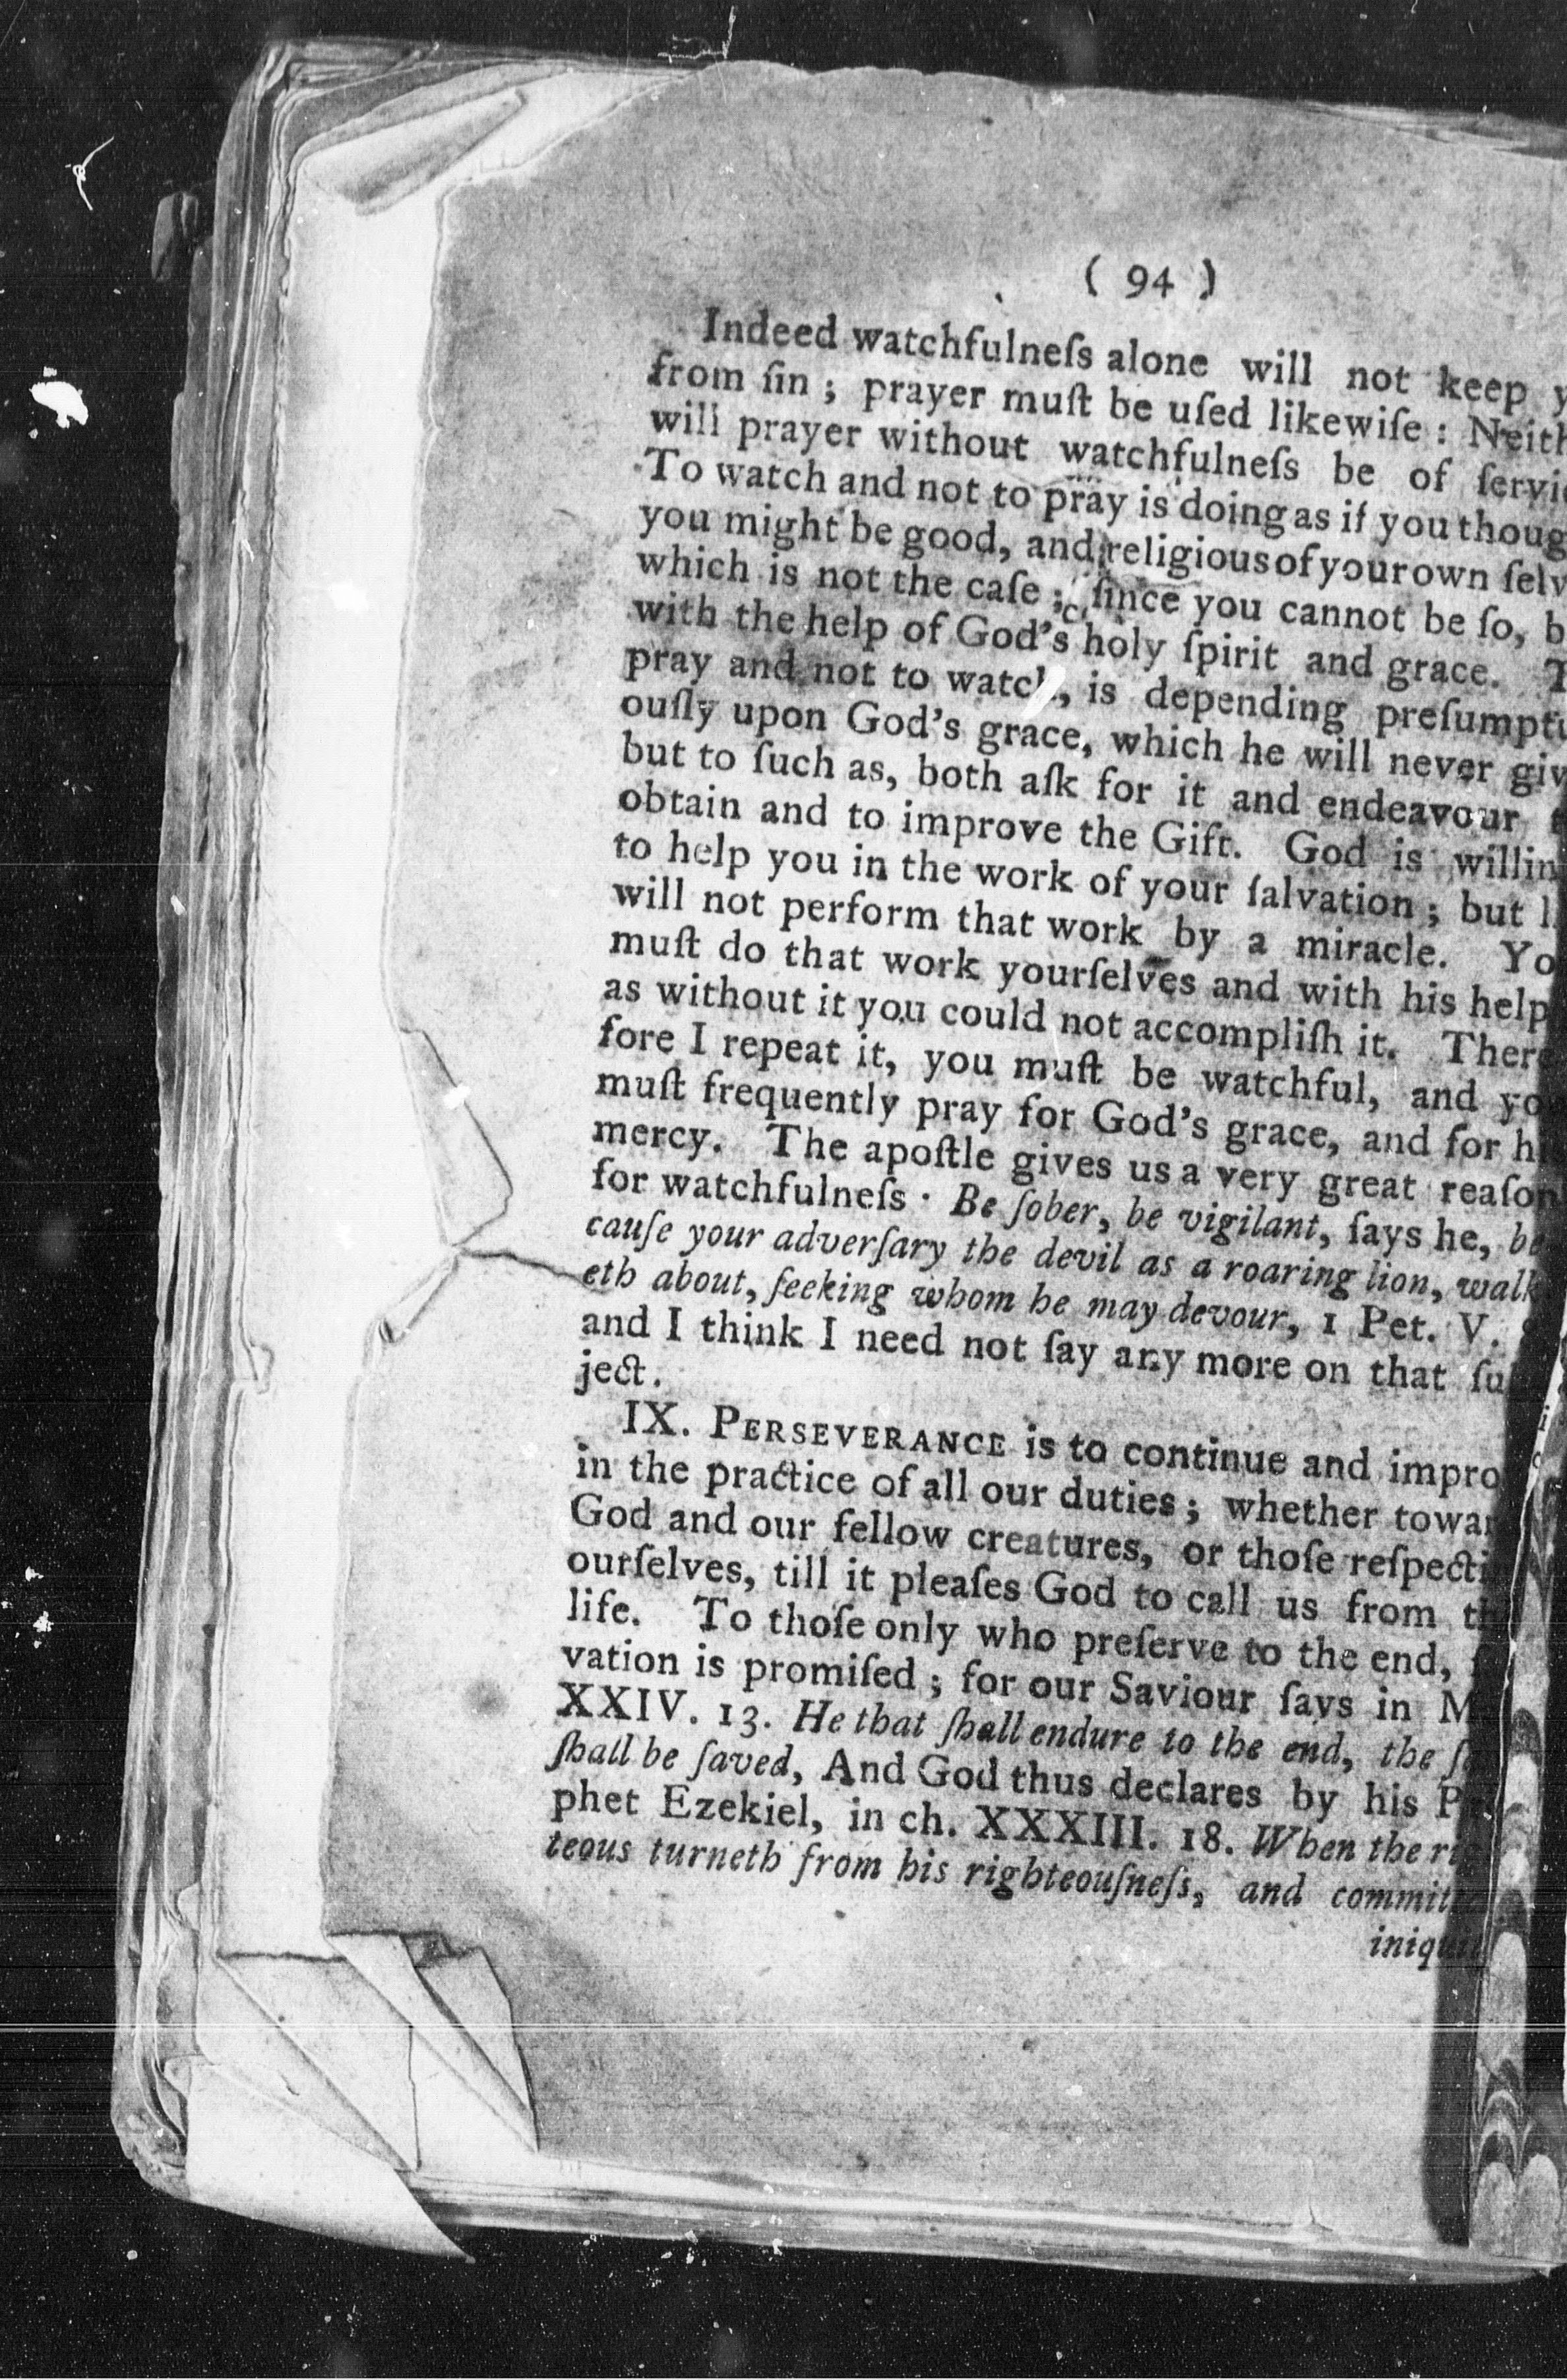 ( 94 )
Indeed watchfulneſs alone will not keep
from ſin ; prayer muſt be uſed likewiſe : Neith
will prayer without watchfulneſs be of ſervi
To watch and not to pray is doing as if you thoug
you might be good, and religious of your own ſelv
which is not the caſe ; ſince you cannot be ſo, b
with the help of God's holy ſpirit and grace. T
pray and not to watch, is depending preſumpti
ouſly upon God's grace, which he will never giv
but to ſuch as, both aſk for it and endeavour
obtain and to improve the Gift. God is willin
to help you in the work of your ſalvation ; but
will not perform that work by a miracle. Yo
muſt do that work yourſelves and with his help
as without it you could not accompliſh it. There
fore I repeat it, you muſt be watchful, and yo
muſt frequently pray for God's grace, and for hi
mercy. The apoſtle gives us a very great reaſon
for watchfulneſs · Be ſober, be vigilant, ſays he, be
cauſe your adverſary the devil as a roaring lion, walk
eth about, ſeeking whom he may devour, 1 Pet. V.
and I think I need not ſay any more on that ſu
ject.
IX. PERSEVERANCE is to continue and impro
in the practice of all our duties ; whether towar
God and our fellow creatures, or thoſe reſpecti
ourſelves, till it pleaſes God to call us from th
life. To thoſe only who preſerve to the end,
vation is promiſed ; for our Saviour ſays in M
XXIV. 13. He that ſhall endure to the end, the ſa
ſhall be ſaved, And God thus declares by his Pr
phet Ezekiel, in ch. XXXIII. 18. When the rig
teous turneth from his righteouſneſs, and commit
iniqui